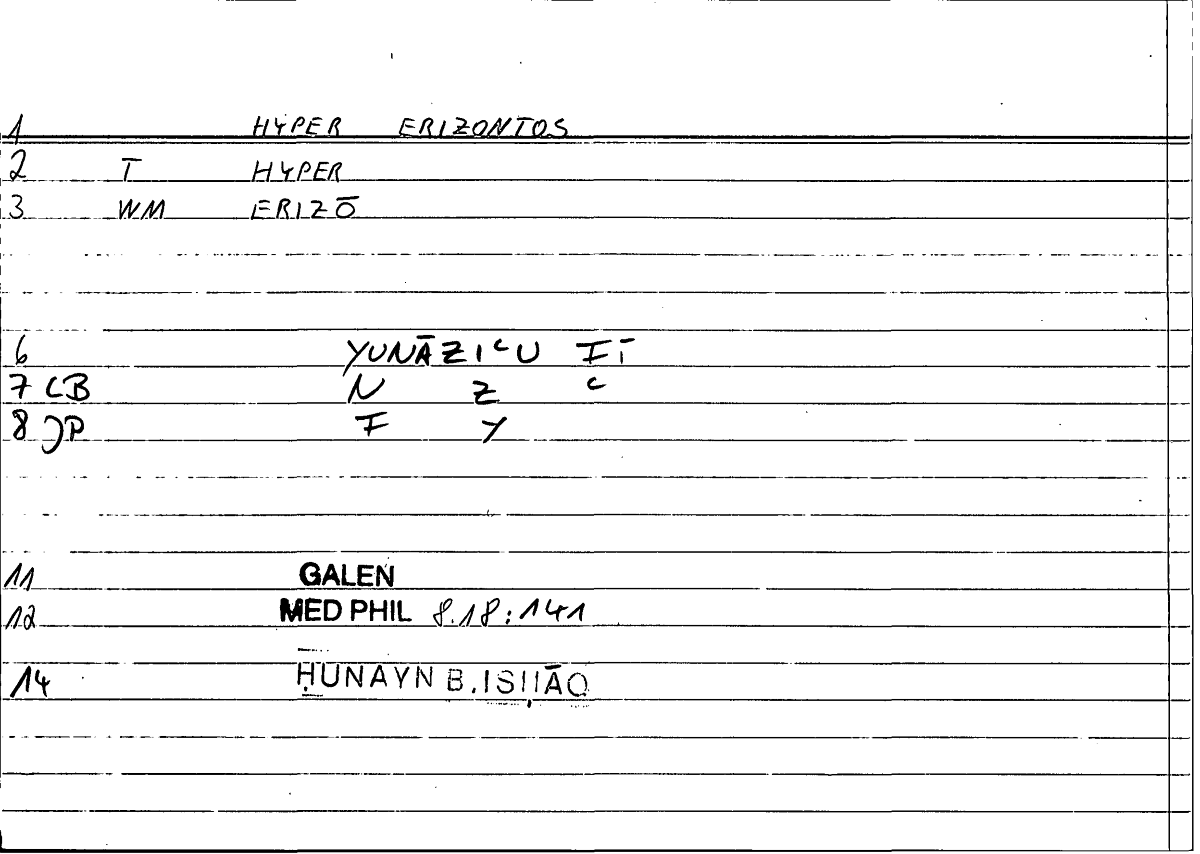 1 HYPER ERIZONTOS
2 T HYPER
3 WM ERIZŌ
6 YUNĀZIʿU FĪ
7 CB N Z ʿ
8 JP F Y
11 GALEN
12 MED PHIL 8.18:141
14 ḤUNAYN B. ISḤĀQ